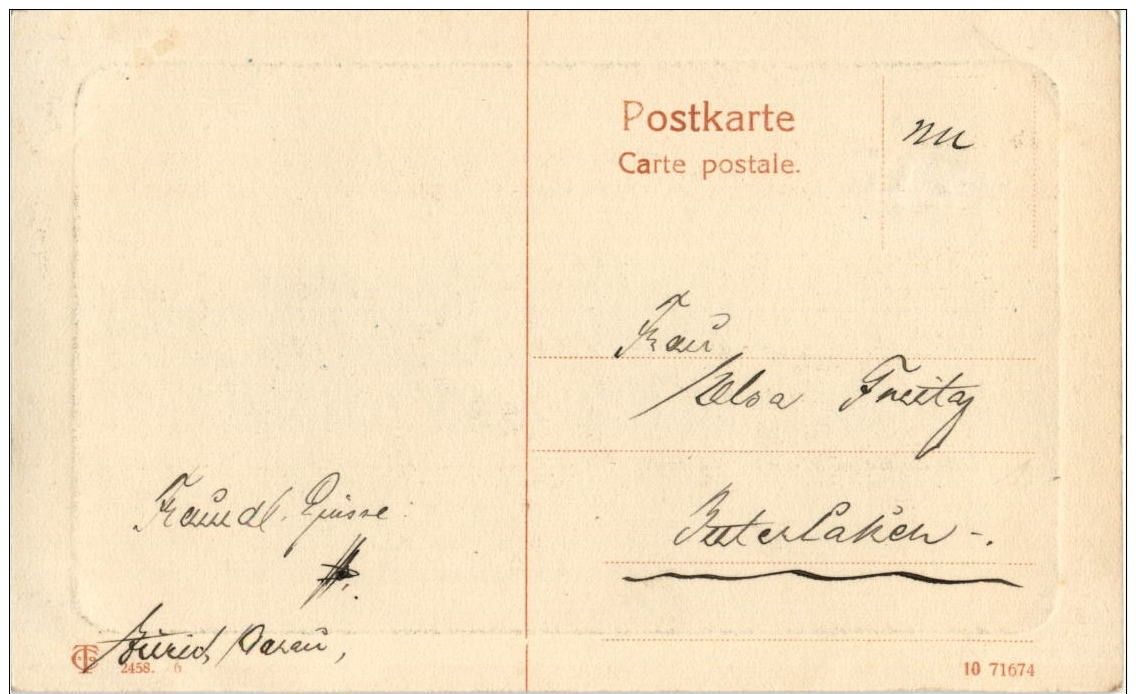 Postkarte
Carte postale.
Frau
Elsa Freitag
Interlaken -.
Freundl. Grüsse
Zürich, Aarau,
2458. 6
10 71674